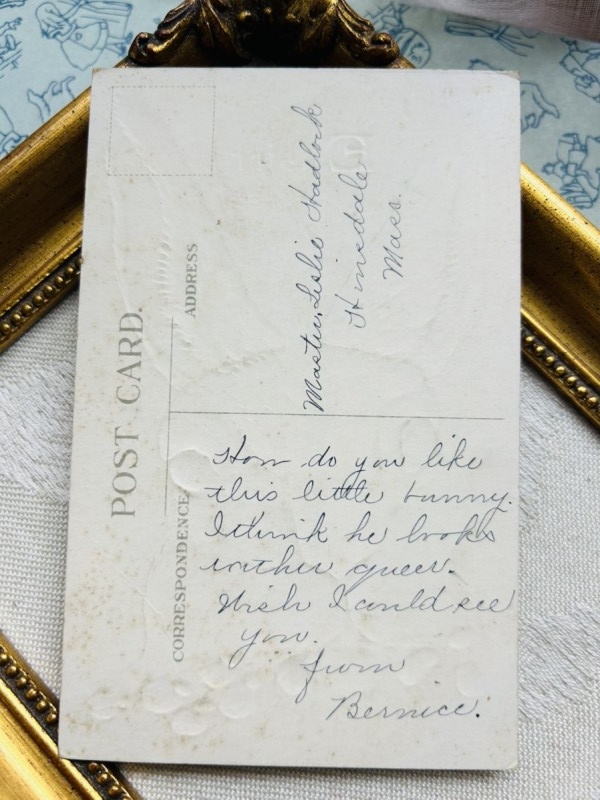 POST CARD.
CORRESPONDENCE
ADDRESS
Master, Leslie Hadlock
Hinsdale
Mass.
How do you like
this little bunny.
I think he looks
rather queer.
Wish I could see
you.
from
Bernice.